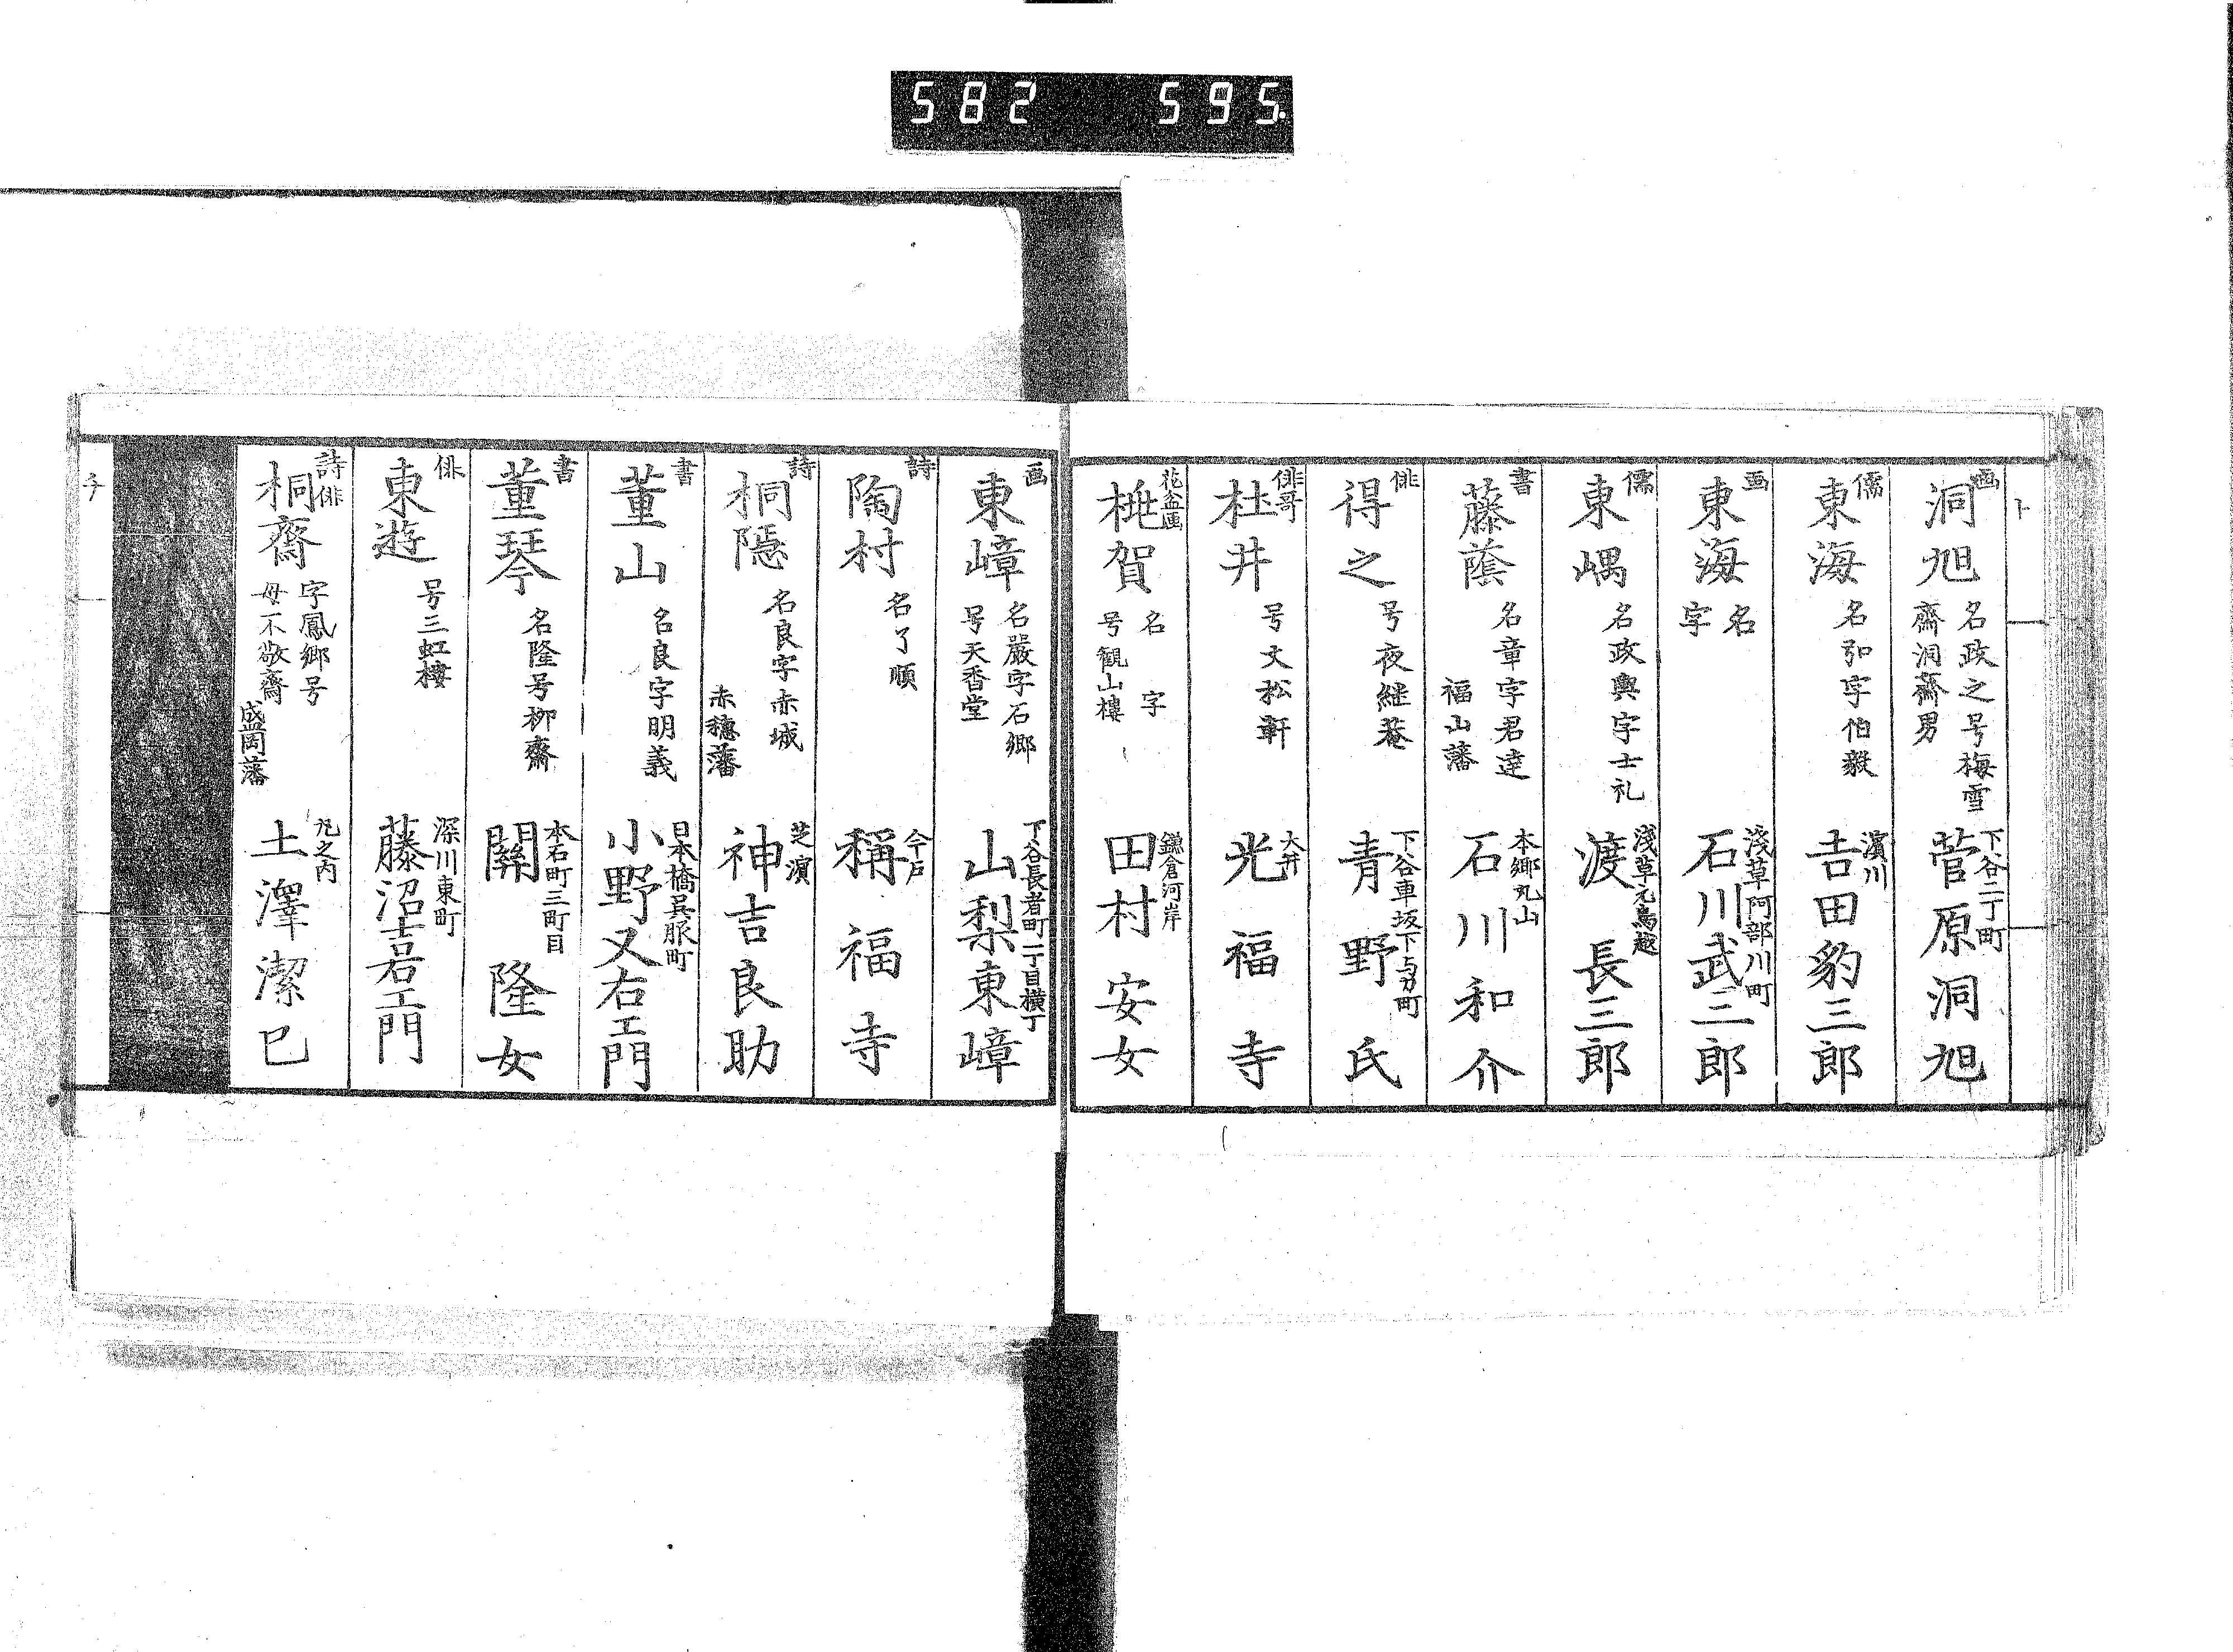 582 595
ト
画
洞旭
名政之号梅雪
齋洞齋男
下谷二丁町
菅原洞旭
儒
東海
名弘字伯毅
濱川
吉田豹三郎
画
東海
名
字
浅草阿部川町
石川武三郎
儒
東嵎
名政輿字士礼
浅草元鳥越
渡長三郎
書
藤蔭
名章字君達
福山藩
本郷丸山
石川和介
俳
得之
号夜継菴
下谷車坂下与力町
青野氏
俳哥
杜井
号文松軒
大井
光福寺
花盆画
桃賀
名 字
号観山樓
鎌倉河岸
田村安女
画
東嶂
名嚴字石郷
号天香堂
下谷長者町一丁目横丁
山梨東嶂
詩
陶村
名了順
今戸
稱福寺
詩
桐隠
名良字赤城
赤穂藩
芝濱
神吉良助
書
董山
名良字明義
日本橋呉服町
小野又右エ門
書
董琴
名隆号柳齋
本石町三町目
關隆女
俳
東遊
号三虹樓
深川東町
藤沼吉右エ門
詩俳
桐齋
字鳳郷号
毋不敬齋
盛岡藩
丸之内
土澤潔巳